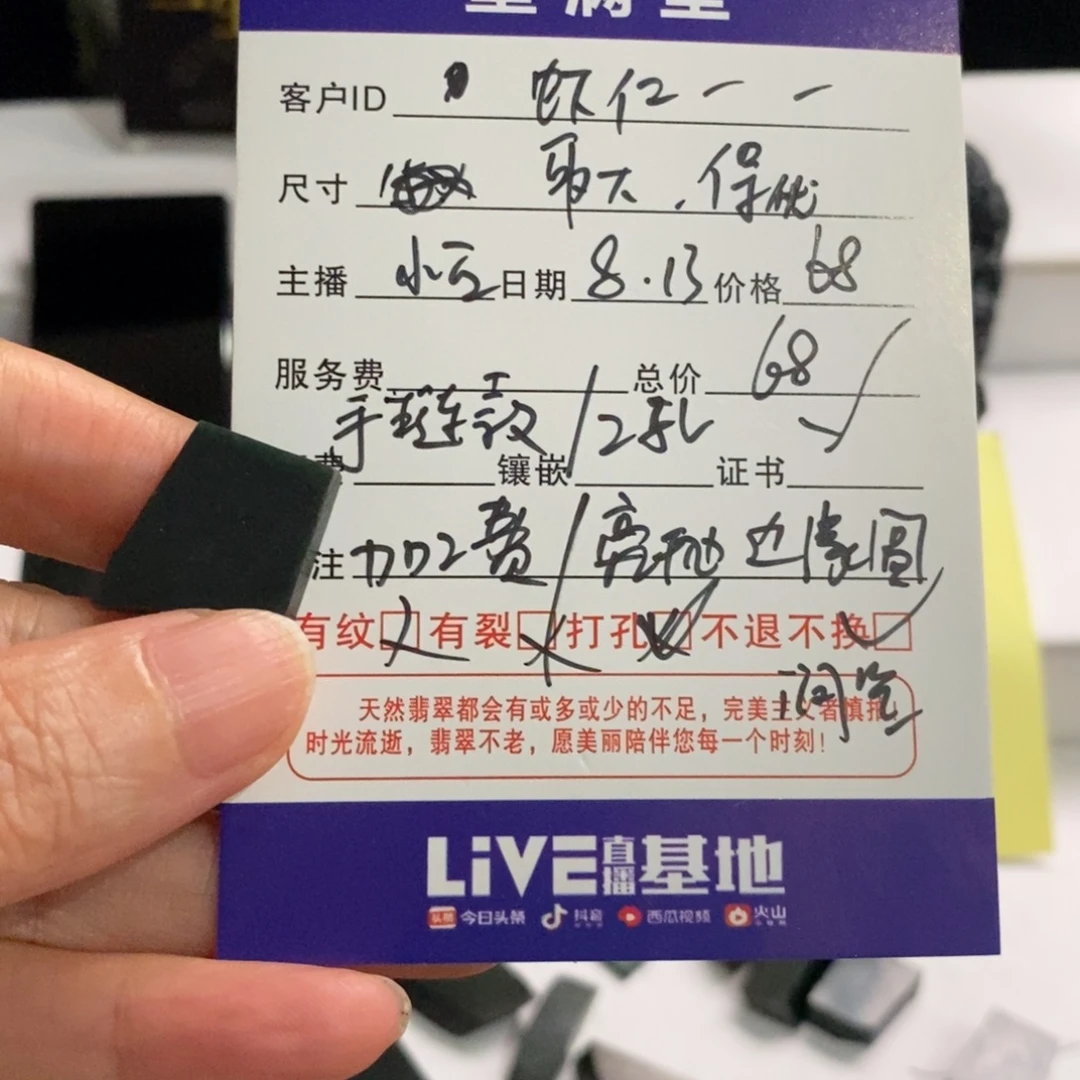 客户ID 虾仁一一
尺寸 取大.保优
主播 小豆 日期 8.13 价格 68
服务费 总价 68
手链款/2孔
费 镶嵌 证书
注 加工费/亮抛 边缘圆润光
有纹 有裂 打孔 不退不换
天然翡翠都会有或多或少的不足，完美主义者慎拍
时光流逝，翡翠不老，愿美丽陪伴您每一个时刻！
LiVE直播基地
头条 今日头条 抖音 西瓜视频 火山